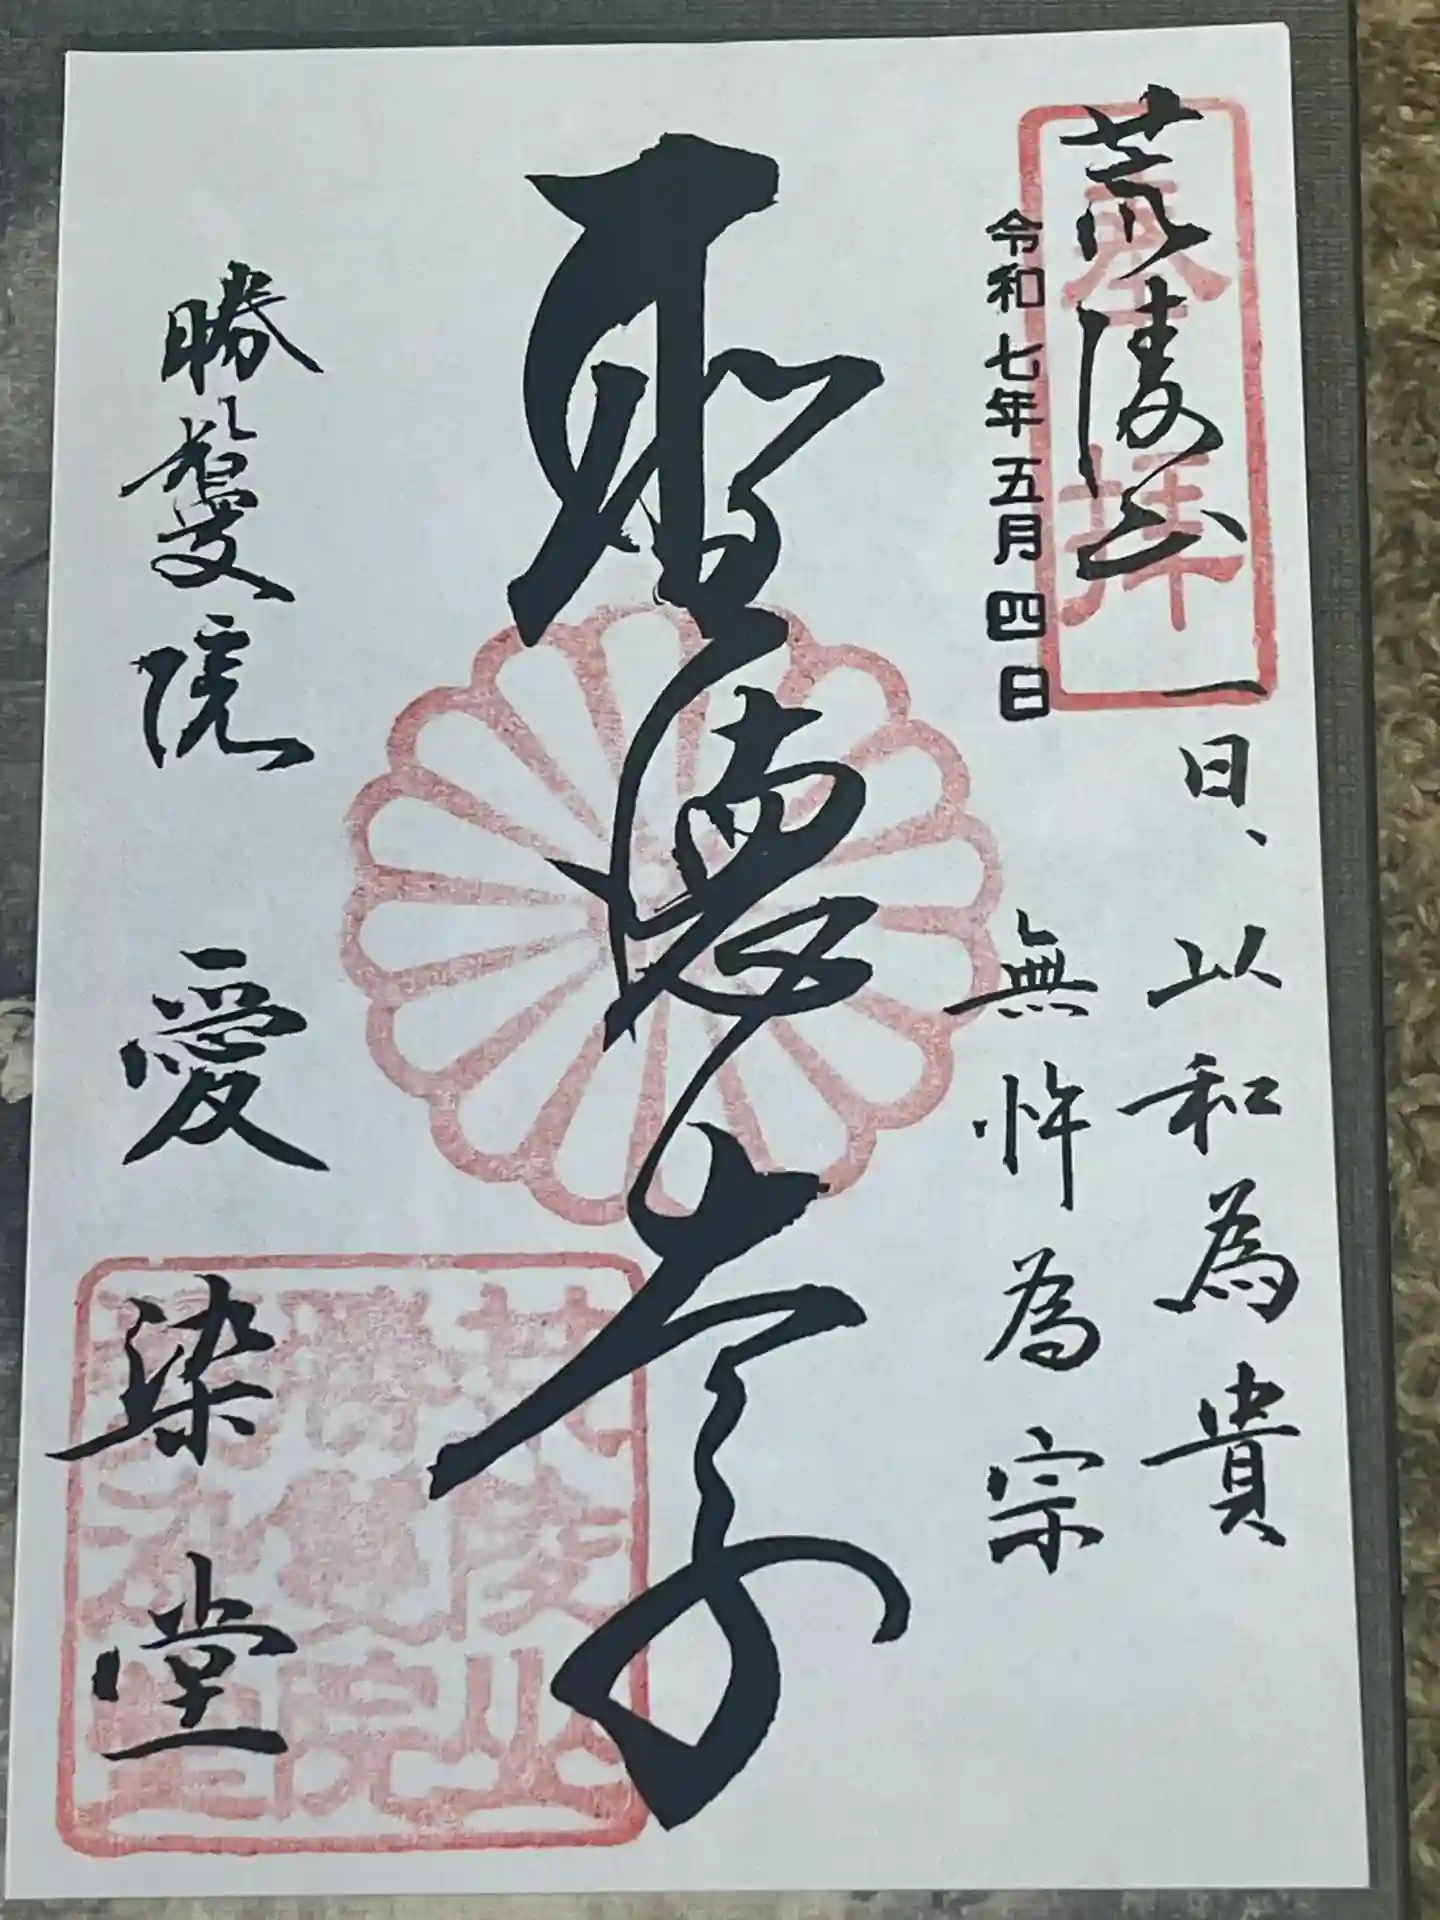 荒陵山
奉拝
一日、以和為貴
無忤為宗
令和七年五月四日
聖徳太子
勝鬘院
愛染堂
荒陵山
勝鬘院
愛染堂